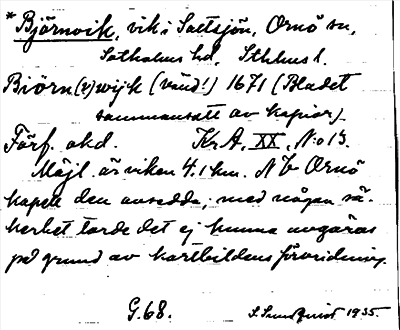 * Björnvik, vik i Saltsjön, Ornö sn,
Sotholms hd, Sthlms l.
Biörn(?)wijk (vänd!) 1671 (Bladet
sammansatt av kopior).
Förf. okd. KrA, XX, N:o 13.
Möjl. är viken 4.1 km. N b Ornö
kapell den avsedda; med någon sä-
kerhet torde det ej kunna avgöras
på grund av kartbildens förvridning.
G.68. S. Sundquist 1935.